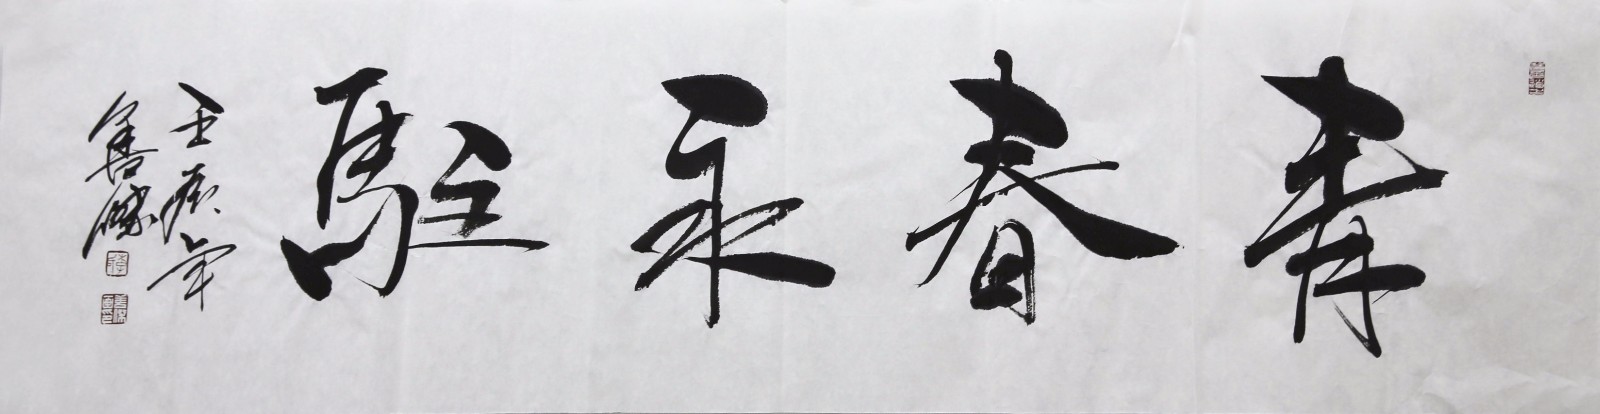 青春永駐
壬辰年